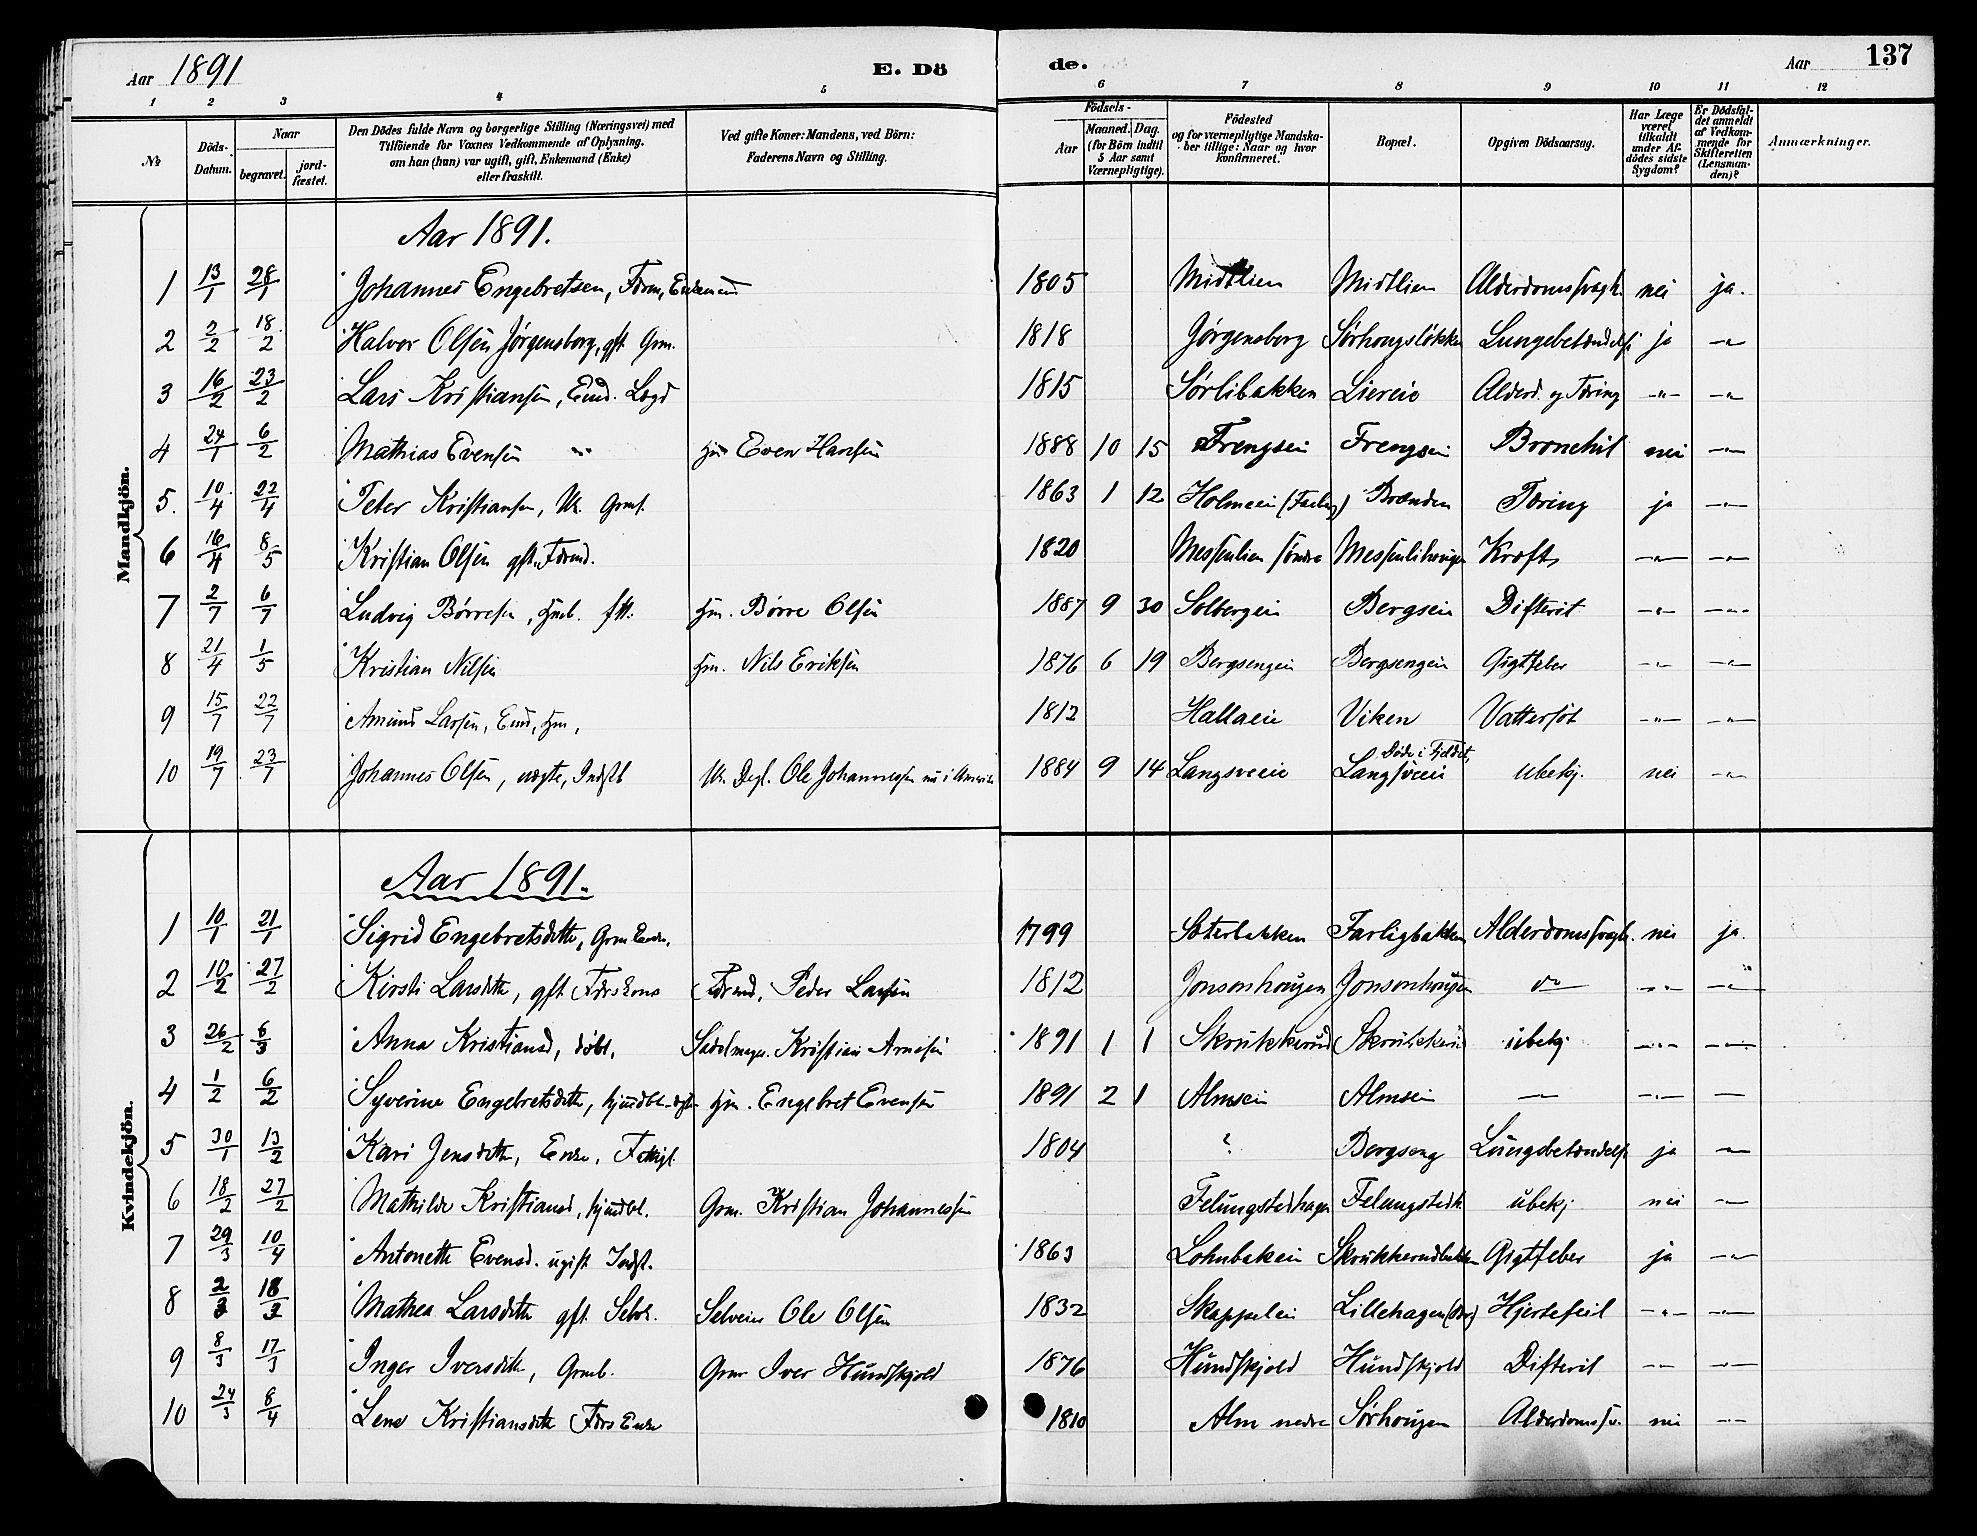 Aar 1891 E. Dö de. Aar 137
1 2 3 4 5 6 7 8 9 10 11 12
No
Döds-Datum.
Naar
begravet.
jord-fæstet.
Den Dödes fulde Navn og borgerlige Stilling (Næringsvei) med
Tilföiende for Voxnes Vedkommende af Oplysning,
om han (hun) var ugift, gift, Enkemand (Enke)
eller fraskilt.
Ved gifte Koner: Mandens, ved Börn:
Faderens Navn og Stilling.
Födsels-
Aar
Maaned. Dag.
(for Börn indtil
5 Aar samt
Værnepligtige).
Födested
og for værnepligtige Mandska-
ber tillige: Naar og hvor
konfirmeret.
Bopæl.
Opgiven Dödsaarsag.
Har Læge
været
tilkaldt
under Af-
dödes sidste
Sygdom?
Er Dödsfal-
det anmeldt
af Vedkom-
mende for
Skifteretten
(Lensman-
den)?
Anmærkninger.
Mandkjön.
Aar 1891.
1 13/1 28/1 Johannes Engebretsen, Fdrm, Enkemand 1805 Midtlien Midtlien Alderdomssvagh. nei ja.
2 2/2 18/2 Halvor Olsen Jørgensborg, gft. Grm. 1818 Jørgensborg Sørhougsløkken Lungebetændelse ja -"-
3 16/2 23/2 Lars Kristiansen, Emd. Lægd 1815 Sørlibakken Liereie Alderd. og Tæring -"- -"-
4 24/1 6/2 Mathias Evensen Hm Even Hansen 1888 10 15 Frengsei Frengsei Bronchit nei -"-
5. 10/4 22/4 Peter Kristiansen, Uk. Grms. 1863 1 12 Holmeei (Faaberg) Brænden Tæring ja -"-
6 16/4 8/5 Kristian Olsen gft. Fdrmd. 1820 Messenlien søndre Messenlihougen Kræft -"- -"-
7 2/7 6/7 Ludvig Børresen, Hmb. Hm. Børre Olsen 1887 9 30 Solbergei Bergsei Difterit -"- -"-
8 21/4 1/5 Kristian Nilsen Hm. Nils Eriksen 1876 6 19 Bergsengei Bergsengei Gigtfeber -"- -"-
9 15/7 22/7 Amund Larsen, Emd, Hm, 1812 Hallaeie Viken Vattersot -"- -"-
10 19/7 23/7 Johannes Olsen, uægte, Indstb Uk. Dagl. Ole Johannessen nu i Amerika 1884 9 14 Langsveeie Døde i Fjeldet, Langsveeie ubekj. nei -"-
Kvindekjön.
Aar 1891.
1 10/1 21/1 Sigrid Engebretsdtter, Grm Enke. 1799 Sæterbakken Farligbakken Alderdomssvagh. nei ja.
2 10/2 27/2 Kirsti Larsdtter, gft. Fdrskone Fdrmd, Peder Larsen 1812 Jonsonhougen Jonsonhougen do -"- -"-
3 26/2 6/3 Anna Kristiansd, døbt, Sadelmager. Kristian Arnesen 1891 1 1 Skrukkerud Skrukkerud ubekj -"- -"-
4 1/2 6/2 Syverine Engebretsdtter, hjemdbt Hm. Engebret Evensen 1891 2 1 Almsei Almsei -"- -"- -"-
5 30/1 13/2 Kari Jensdtter, Enke, Fattigl. 1804 ? Bergseng Lungebetændelse ja -"-
6 18/2 27/2 Mathilde Kristiansd, hjemdbt. Grm. Kristian Johannessen Felungstedhagen Felungstedh. ubekj nei -"-
7 29/3 10/4 Antonette Evensd. ugift Indst. 1863 Lohnbakei Skrukkerudbakken Gigtfeber ja -"-
8 2/3 18/3 Mathea Larsdtter gft. Selveier Ole Olsen 1832 Skappelei Lillehagen Hjertefeil -"- -"-
9 8/3 17/3 Inger Iversdtter, Grmb. Grm Iver Hundskjold 1876 Hundskjold Hundskjold Difterit -"- -"-
10 24/3 8/4 Lene Kristiansdtter Fdrs Enke 1810 Alm nedre Sørhougen Alderdomssv. nei -"-